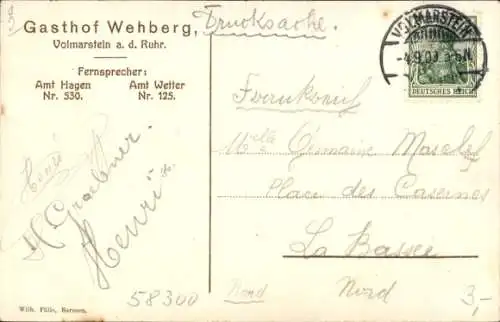 Gasthof Wehberg,
Volmarstein a. d. Ruhr.
Fernsprecher:
Amt Hagen Amt Wetter
Nr. 530. Nr. 125.
Drucksache.
VOLMARSTEIN
-4.9.09
DEUTSCHES REICH
Frankreich
Melle Germaine
Place des Casernes
La Bassee
Nord
Nord
Henri
H Graebner
Henri
58300
3,-
Wilh. Fülle, Barmen.